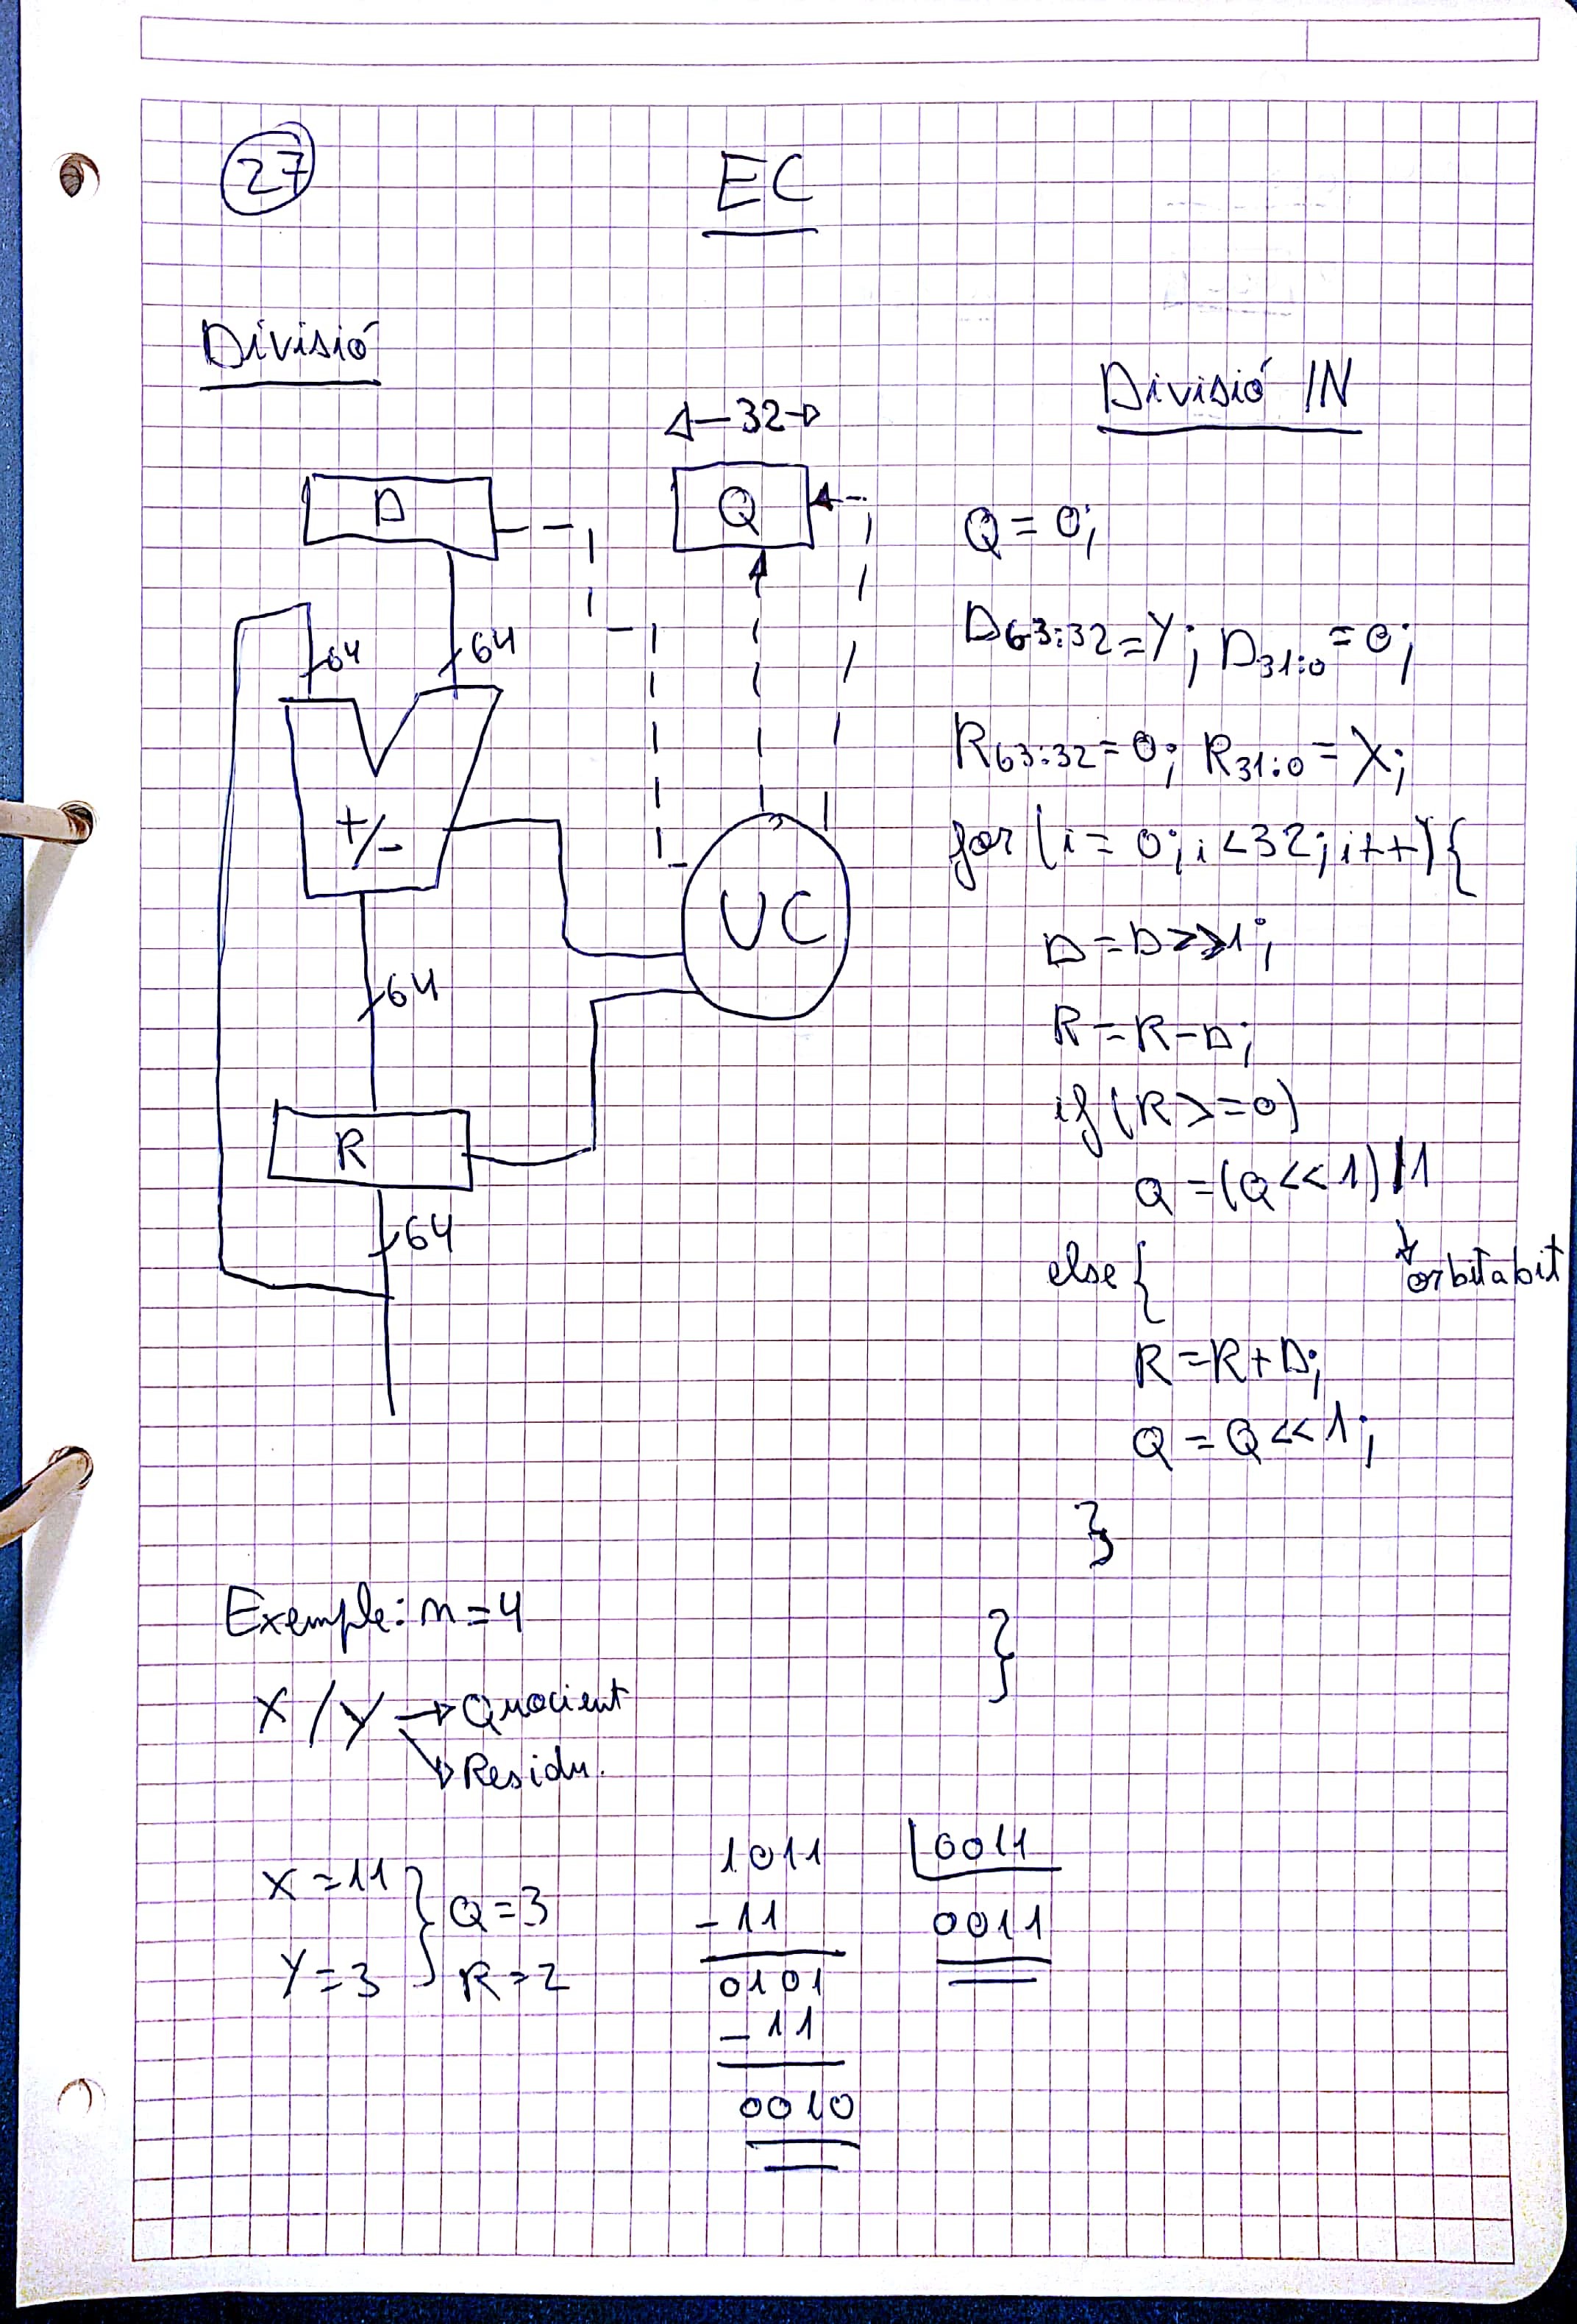 27
EC
Divisió
32
D
Q
64
64
+/-
UC
64
R
64
Divisió IN
Q = 0;
D63:32 = Y; D31:0 = 0;
R63:32 = 0; R31:0 = X;
for (i = 0; i < 32; i++) {
D = D >> 1;
R = R - D;
if (R >= 0)
Q = (Q << 1) | 1
or bit a bit
else {
R = R + D;
Q = Q << 1;
}
}
Exemple: n = 4
X / Y → Quocient
Residu.
X = 11
Y = 3
Q = 3
R = 2
1011 0011
- 11 0011
0101
- 11
0010